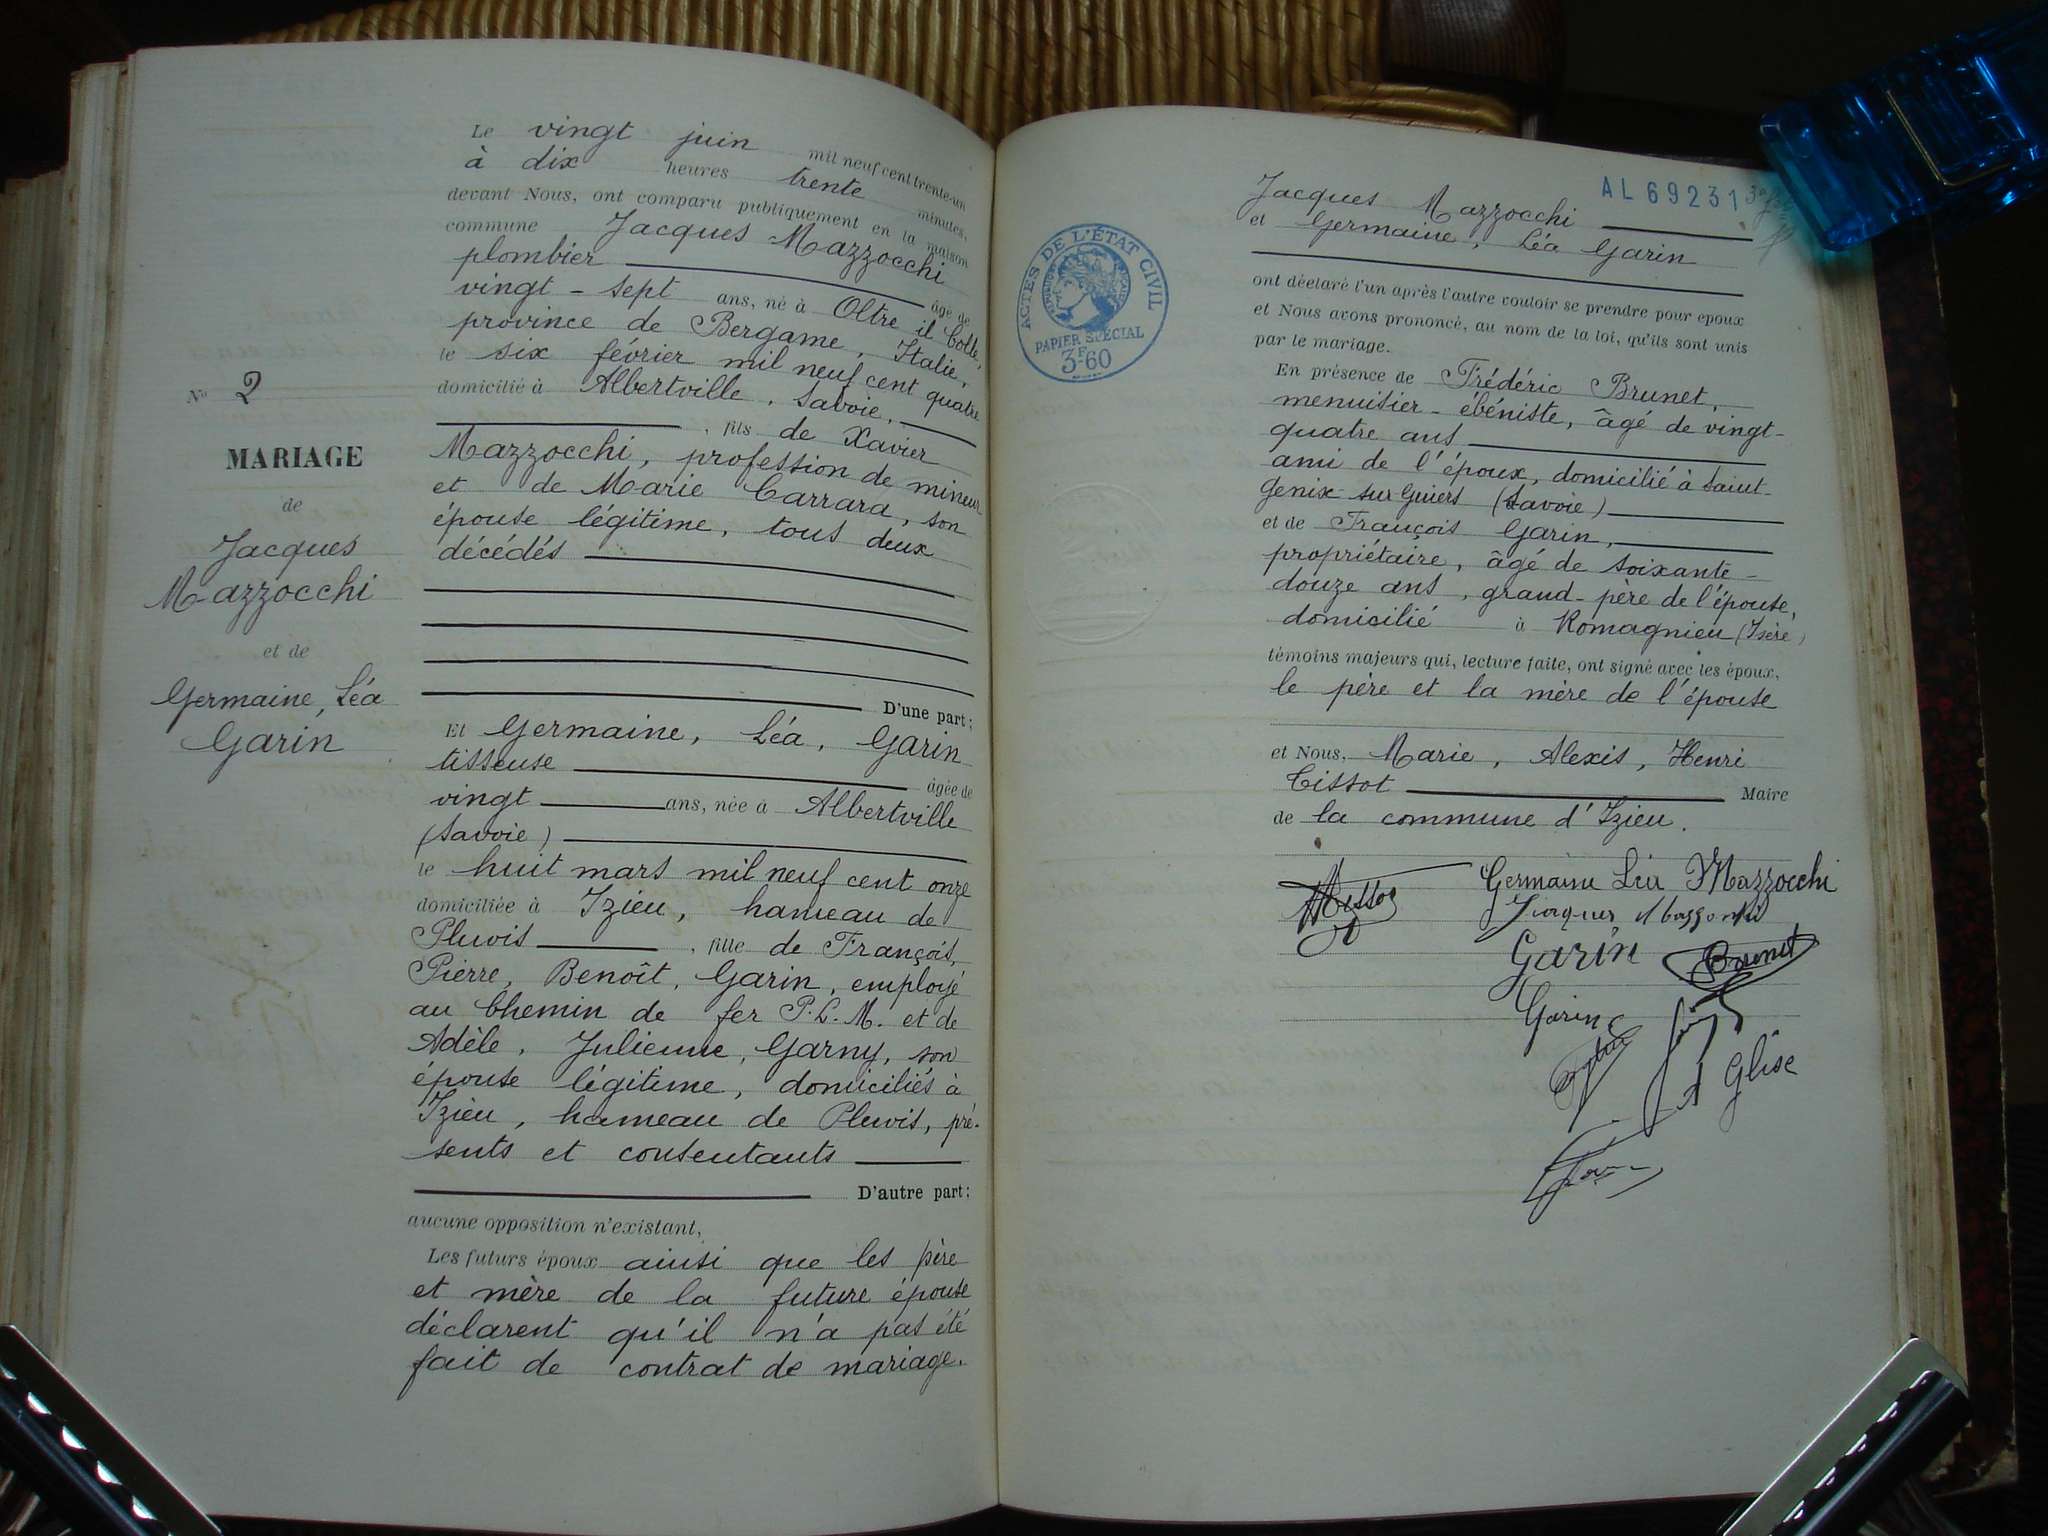 Le vingt juin mil neuf cent trente-un
à dix heures trente minutes,
devant Nous, ont comparu publiquement en la maison
commune Jacques Mazzocchi
plombier âgé de
vingt-sept ans, né à Oltre il Colle,
province de Bergame, Italie,
le six février mil neuf cent quatre
domicilié à Albertville, Savoie,
, fils de Xavier
Mazzocchi, profession de mineur
et de Marie Carrara, son
épouse légitime, tous deux
décédés
D'une part:
Et Germaine, Léa, Garin
tisseuse âgée de
vingt ans, née à Albertville
(Savoie)
le huit mars mil neuf cent onze
domiciliée à Izieu, hameau de
Pluvis , fille de François,
Pierre, Benoît, Garin, employé
au Chemin de fer P.L.M. et de
Adèle, Julienne, Garny, son
épouse légitime, domiciliés à
Izieu, hameau de Pluvis, pré-
sents et consentants
D'autre part:
aucune opposition n'existant,
Les futurs époux ainsi que les père
et mère de la future épouse
déclarent qu'il n'a pas été
fait de contrat de mariage.
No 2
MARIAGE
de
Jacques
Mazzocchi
et de
Germaine, Léa
Garin
ACTES DE L'ÉTAT CIVIL
PAPIER SPÉCIAL
3F60
AL 69231
Jacques Mazzocchi
et Germaine, Léa Garin
ont déclaré l'un après l'autre vouloir se prendre pour époux
et Nous avons prononcé, au nom de la loi, qu'ils sont unis
par le mariage.
En présence de Frédéric Brunet,
menuisier-ébéniste, âgé de vingt-
quatre ans
ami de l'époux, domicilié à Saint-
Genix-sur-Guiers (Savoie)
et de François Garin,
propriétaire, âgé de soixante-
douze ans, grand-père de l'épouse,
domicilié à Romagnieu (Isère)
témoins majeurs qui, lecture faite, ont signé avec les époux,
le père et la mère de l'épouse
et Nous, Marie, Alexis, Henri
Tissot Maire
de la commune d'Izieu.
HTissot
Germaine Léa Mazzocchi
Jacques Mazzocchi
Garin Brunet
Garin
A Glise